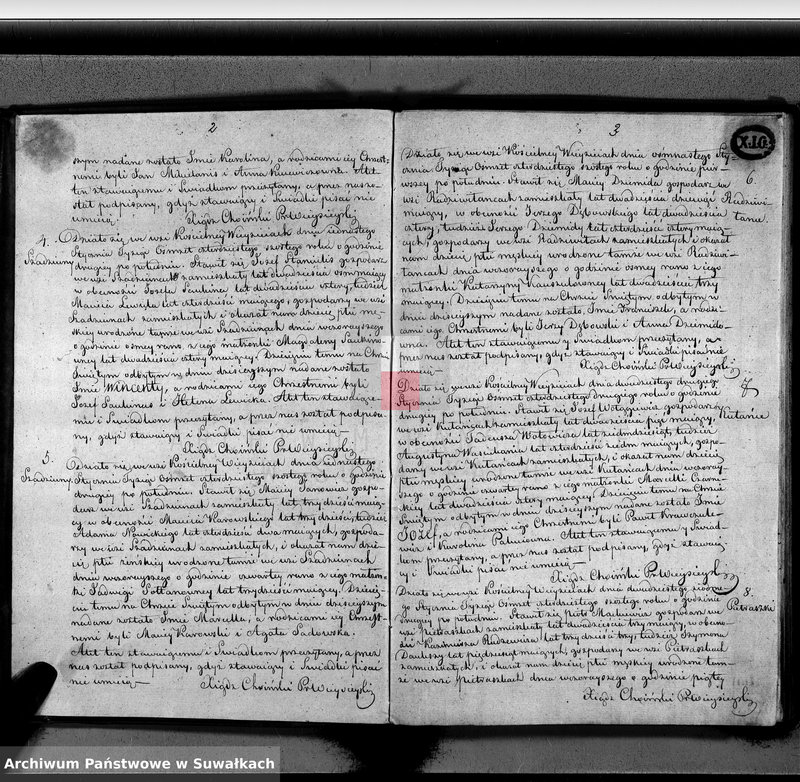 2
szym nadane zostało Imie Karolina, a rodzicami iey Chrzest-
nemi byli Jan Mikielanis i Anna Akt
ten stawaiącemu i Świadkom przeczytany, a przez nas zo-
stał podpisany, gdyż stawaiący i Świadki pisać nie
umieią
Xiądz Choiński P. Wieysieyski
4. Działo się we wsi Kościelney Wieysieiach dnia iedenastego
Szadziuny Stycznia Tysiąc Ośmset czterdziestego szostego roku o godzinie
drugiey po południu. Stawił się Jozef Stanielis gospodarz
we wsi Szadziunach zamieszkały lat dwadzieścia ośm maiący
w obecności Jozefa Saulina lat dwadzieścia cztery, tudzież
Macieia Lewicka lat czterdzieści maiącego, gospodarzy we wsi
Szadziunach zamieszkałych i okazał nam dziecię płci mę-
skiey urodzone tamże we wsi Szadziunach dnia wczorayszego
o godzinie osmey rano z iego małżonki Magdaleny
lat dwadzieścia cztery maiącey. Dziecięciu temu na Chrzcie
Świętym odbytym w dniu dzisieyszym nadane zostało
Imie Wincenty, a rodzicami iego Chrzestnemi byli
Jozef Saulinas i Helena Lewicka. Akt ten stawaiące-
mu i Świadkom przeczytany, a przez nas został podpisa-
ny, gdyż stawaiący i Świadki pisać nie umieią
Xiądz Choiński P. Wieysieyski
5. Działo się we wsi Kościelney Wieysieiach dnia iedenastego
Szadziuny Stycznia Tysiąc Ośmset czterdziestego szostego roku o godzinie
drugiey po południu. Stawił się Maciey Janowicz gospo-
darz we wsi Szadziunach zamieszkały lat trzydzieści maią-
cy w obecności Macieia Karowskiego lat trzydzieści, tudzież
Adama Nowickiego lat czterdzieści dwa maiących, gospoda-
rzy we wsi Szadziunach zamieszkałych, i okazał nam dzie-
cię płci żeńskiey urodzone tamże we wsi Szadziunach
dniu wczorayszego o godzinie czwartey rano z iego małżon-
ki Jadwigi lat trzydzieści maiącey. Dziecię-
ciu temu na Chrzcie Świętym odbytym w dniu dzisieyszym
nadane zostało Imie Marcella, a rodzicami iey Chrzest-
nemi byli Maciey Karowski i Agata Sadowska.
Akt ten stawaiącemu i Świadkom przeczytany, a przez
nas został podpisany, gdyż stawaiący i Świadki pisać
nie umieią
Xiądz Choiński P. Wieysieyski
3
Działo się we wsi Kościelney Wieysieiach dnia ośmnastego Sty-
cznia Tysiąc Ośmset czterdziestego szostego roku o godzinie pier-
wszey po południu. Stawił się Maciey Dzemida gospodarz we 6.
wsi Radziwitańcach zamieszkały lat dwadzieścia dziewięć Radziwi-
maiący, w obecności Jerzego Dębowskiego lat dwadzieścia tańce.
cztery, tudzież Jerzego Dziemidy lat czterdzieści cztery maią-
cych, gospodarzy we wsi Radziwitańcach zamieszkałych i okazał
nam dziecię płci męskiey urodzone tamże we wsi Radziwi-
tańcach dnia wczorayszego o godzinie osmey rano z iego
małżonki Katarzyny lat dwadzieścia trzy
maiącey. Dziecięciu temu na Chrzcie Świętym odbytym w
dniu dzisieyszym nadane zostało Imie Franciszek, a rodzi-
cami iego Chrzestnemi byli Jerzy Dębowski i Anna Dziemido-
wna. Akt ten stawaiącemu y Świadkom przeczytany, a
przez nas został podpisany, gdyż stawaiący i Świadki pisać nie
umieią
Xiądz Choiński P. Wieysieyski
Działo się we wsi Kościelney Wieysieiach dnia dwudziestego drugiego 7
Stycznia Tysiąc Ośmset czterdziestego drugiego roku o godzinie
drugiey po południu. Stawił się Jozef gospodarz
we wsi Kutańcach zamieszkały lat dwadzieścia pięć maiący, Kutańce
w obecności Tadeusza lat siedmdziesiąt tudzież
Augustyna lat czterdzieści siedm maiących, gospo-
darzy we wsi Kutańcach zamieszkałych, i okazał nam dziecię
płci męskiey urodzone tamże we wsi Kutańcach dnia wczoray-
szego o godzinie czwartey rano z iego małżonki Marcelli
lat dwadzieścia cztery maiącey. Dziecięciu temu na Chrzcie
Świętym odbytym w dniu dzisieyszym nadane zostało Imie
Jozef, a rodzicami iego Chrzestnemi byli Paweł
i Karolina Akt ten stawaiącemu y Świad-
kom przeczytany, a przez nas został podpisany, gdyż stawaią-
cy i Świadki pisać nie umieią
Xiądz Choiński P. Wieysieyski
Działo się we wsi Kościelney Wieysieiach dnia dwudziestego 8.
go Stycznia Tysiąc Ośmset czterdziestego szostego roku o godzinie
drugiey po południu. Stawił się Piotr gospodarz we Pietraszki
wsi Pietraszkach zamieszkały lat dwadzieścia trzy maiący, w obecno-
ści Kazimierza lat trzydzieści trzy, tudzież Szymona
lat piędziesiąt maiących, gospodarzy we wsi Pietraszkach
zamieszkałych, i okazał nam dziecię płci męskiey urodzone tam-
że we wsi Pietraszkach dnia wczorayszego o godzinie piątey
Xiądz Choiński P. Wieysieyski
Archiwum Państwowe w Suwałkach